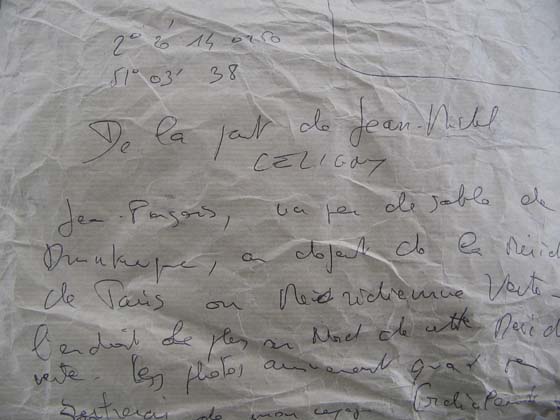 2° 20' 14 0250
51° 03' 38
De la part de Jean-Michel
CELIGNY
Jean-François, un peu de sable de
Dunkerque, au départ de la Mérid
de Paris ou Méridienne Verte
l'endroit le plus au Nord de cette Mérid
verte. Les photos arriveront quand je
de mon